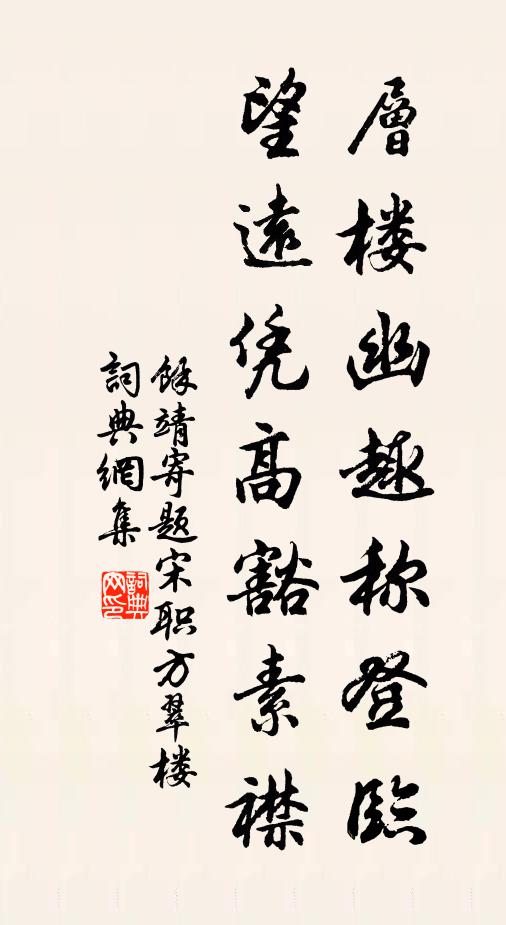 層楼幽趣称登臨
望遠凭高豁素襟
馀靖寄題宋职方翠楼
詞典網集
詞典网印